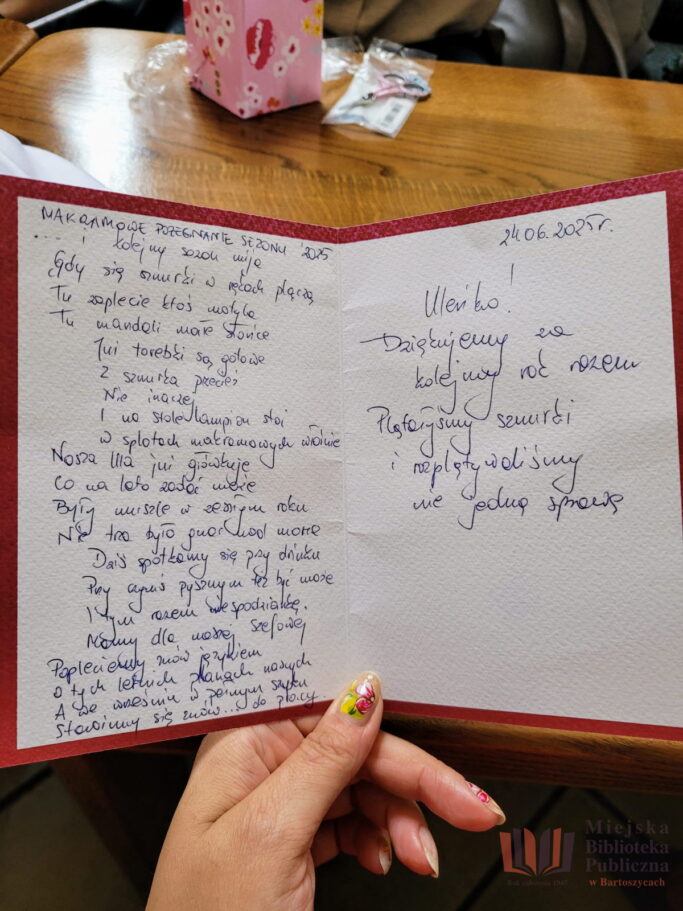 MAKRAMOWE POŻEGNANIE SEZONU '2025
... i kolejny sezon mija
Gdy się sznurki w rękach plączą
Tu zaplecie ktoś motyla
Tu mandali małe słońce
Już torebki są gotowe
Z sznurka przecież
Nie inaczej
I na stole lampion stoi
w splotach makramowych właśnie
Nasza Ula już główkuje
Co na lato zadać może
Były muszle w zeszłym roku
Nie trza było gnać nad morze
Dziś spotkamy się przy drinku
Przy czymś pysznym też być może
I tym razem niespodziankę
Mamy dla naszej szefowej
Popleciemy znów językiem
O tych letnich planach naszych
A we wrześniu w pełnym szyku
Stawimy się znów... do pracy...
24.06.2025r.
Uleńko!
Dziękujemy za
kolejny rok razem
Plątaliśmy sznurki
i rozplątywaliśmy
nie jedną sprawę
Miejska
Biblioteka
Publiczna
w Bartoszycach